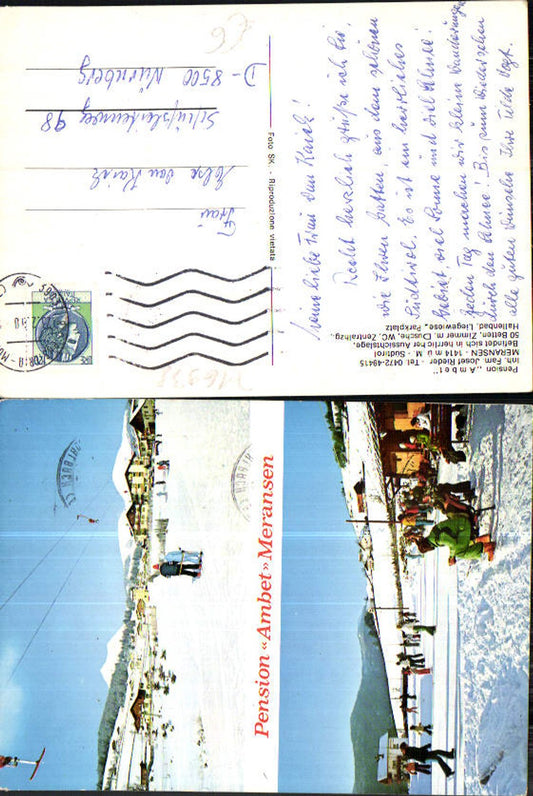 Pension „Ambet"
Inh. Fam. Josef Rieder · Tel. 0472-49415
MERANSEN · 1414 m ü. M. · Südtirol
Befindet sich in herrlicher Aussichtslage,
50 Betten, Zimmer m. Dusche, WC, Zentralhzg.
Hallenbad, Liegewiose, Parkplatz
Meine liebe Frau van Kaick!
Recht herzlich grüße ich Sie
wie Ihren Gatten, aus dem schönen
Südtirol. Es ist ein herrliches
Gebiet viel Sonne und viel Schnee!
Jeden Tag machen wir kleine Wanderungen
durch den Schnee! Bis zum Wiedersehen
alle guten Wünsche Ihre Tilde Vogt.
Foto SK. - Riproduzione vietata
Frau
Else van Kaick
98
D-8500 Nürnberg
€6
Pension «Ambet» Meransen